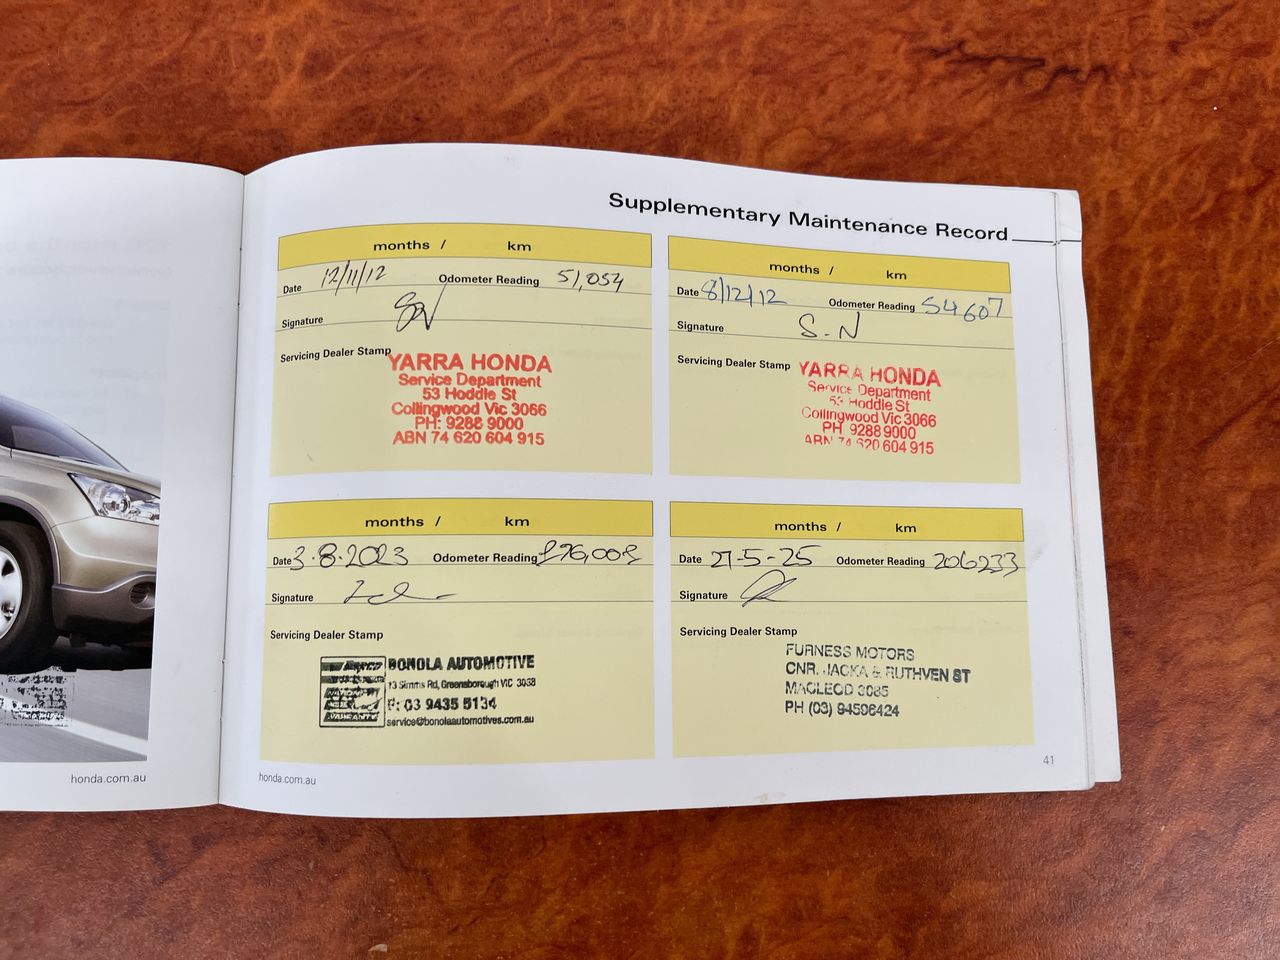 Supplementary Maintenance Record
months / km
Date 12/11/12 Odometer Reading 51,054
Signature
Servicing Dealer Stamp
YARRA HONDA
Service Department
53 Hoddle St
Collingwood Vic 3066
PH: 9288 9000
ABN 74 620 604 915
months / km
Date 8/12/12 Odometer Reading 54607
Signature S.N
Servicing Dealer Stamp
YARRA HONDA
Service Department
53 Hoddle St
Collingwood Vic 3066
PH 9288 9000
ABN 74 620 604 915
months / km
Date 3.8.2023 Odometer Reading
Signature
Servicing Dealer Stamp
BONOLA AUTOMOTIVE
Rd, Greensborough VIC 3088
P: 03 9435 5134
service@bonolaautomotives.com.au
months / km
Date 21-5-25 Odometer Reading 206233
Signature
Servicing Dealer Stamp
FURNESS MOTORS
CNR. JACKA & RUTHVEN ST
MACLEOD 3085
PH (03) 94596424
honda.com.au
honda.com.au
41